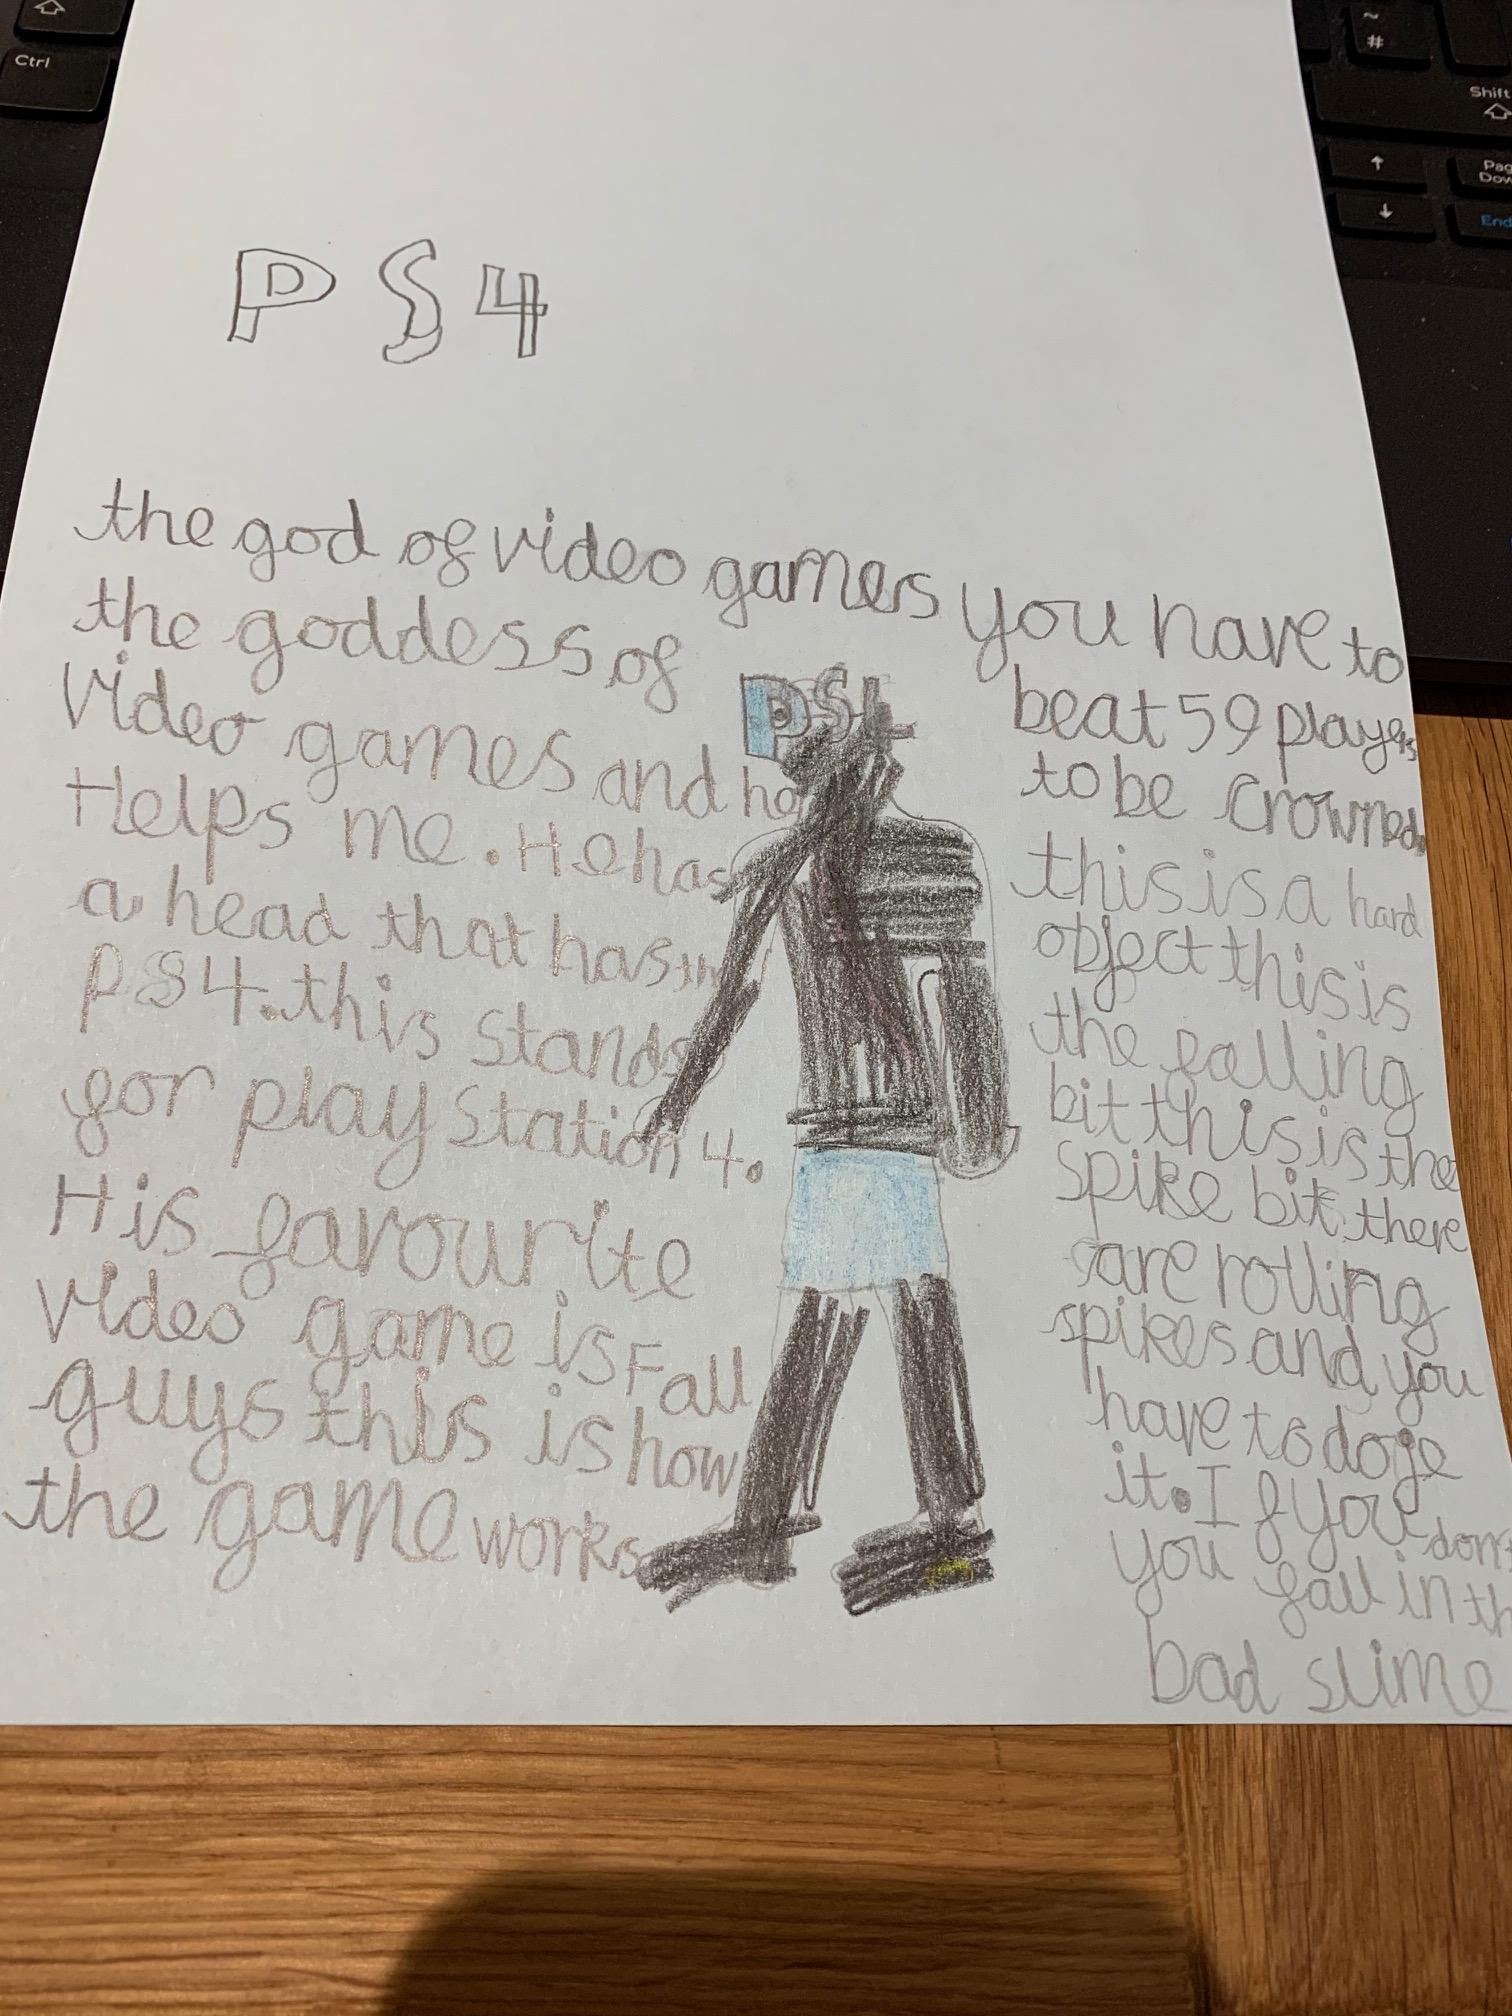 Ctrl
~
#
Shift
End
PS4
the god of video games
the goddess of
video games and he
Helps me. He has
a head that has
PS4. this stands
for play station 4.
His favourite
video game is Fall
guys this is how
the game works
PS4
you have to
beat 59 players
to be crowned.
this is a hard
object this is
the falling
bit this is the
spike bit. there
are rolling
spikes and you
have to doje
it. If you don't
you fall in
bad slime